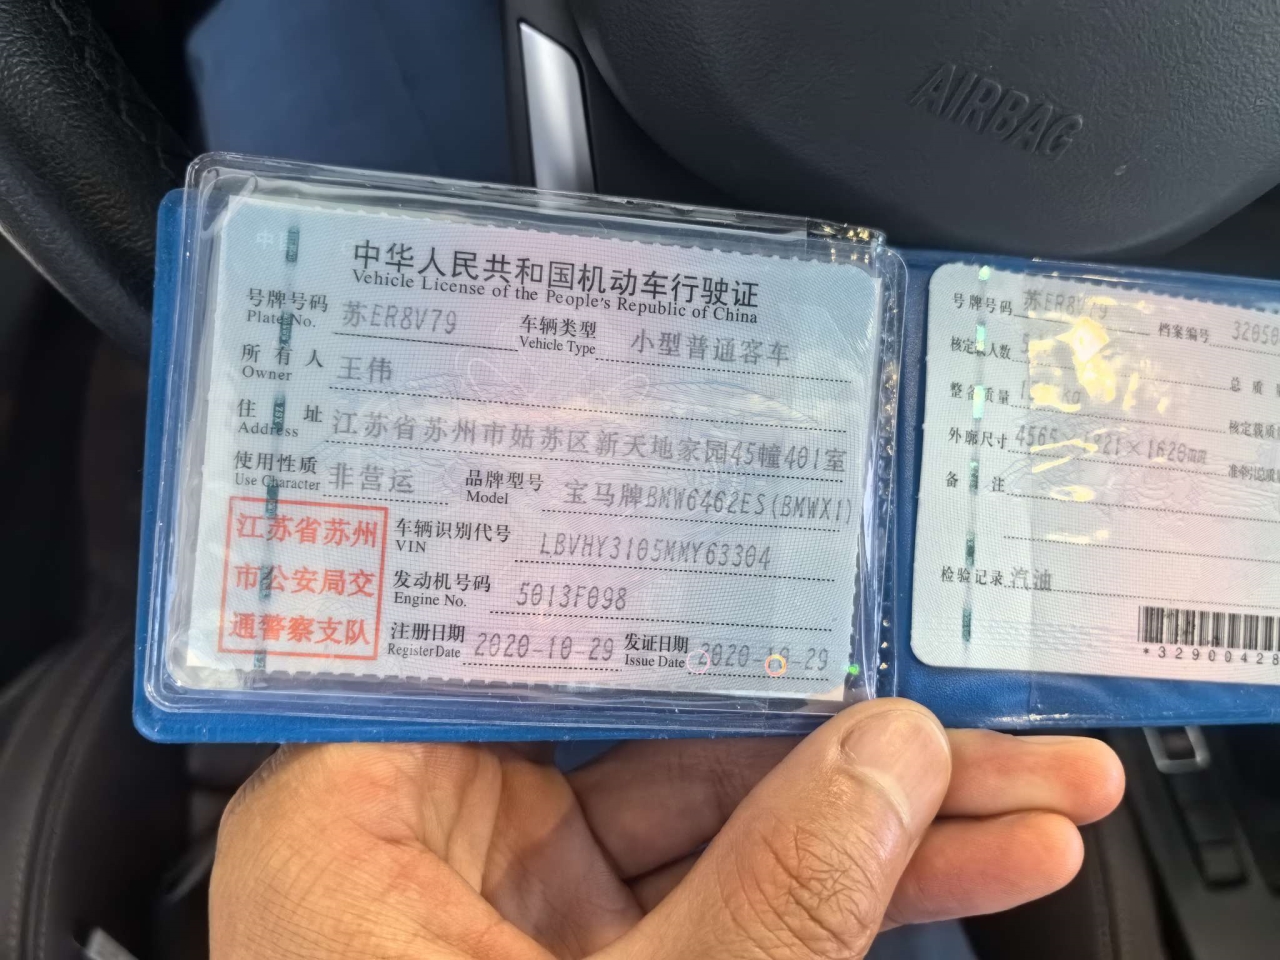 AIRBAG
中华人民共和国机动车行驶证
Vehicle License of the People's Republic of China
号牌号码 苏ER8V79 车辆类型 小型普通客车
Plate No. Vehicle Type
所有人 王伟
Owner
住址 江苏省苏州市姑苏区新天地家园45幢401室
Address
使用性质 非营运 品牌型号 宝马牌BMW6462ES(BMWX1)
Use Character Model
江苏省苏州
市公安局交
通警察支队
车辆识别代号 LBVHY3105MMY63304
VIN
发动机号码 5013F098
Engine No.
注册日期 2020-10-29 发证日期 2020-10-29
Register Date Issue Date
号牌号码 苏ER8V79 档案编号 32050
核定载人数
整备质量 kg 总质
外廓尺寸 4565 21×1620mm 核定载质
备注 准牵总质
检验记录 汽油
*32900428